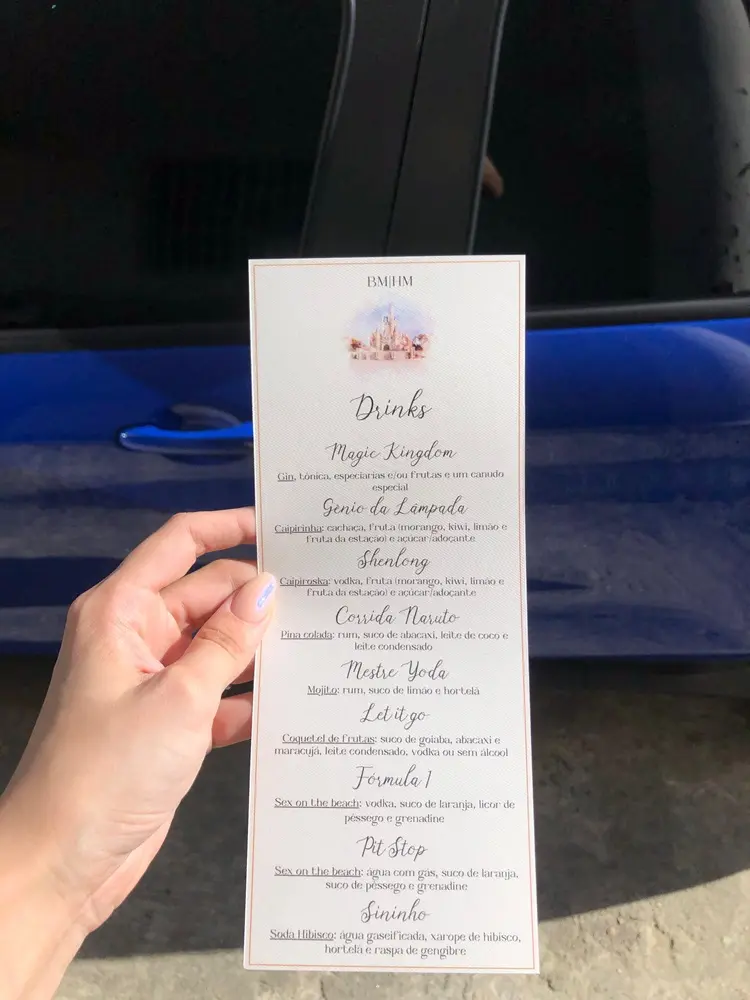 BM|HM
Drinks
Magic Kingdom
Gin, tônica, especiarias e/ou frutas e um canudo
especial
Gênio da Lâmpada
Caipirinha: cachaça, fruta (morango, kiwi, limão e
fruta da estação) e açúcar/adoçante
Shenlong
Caipiroska: vodka, fruta (morango, kiwi, limão e
fruta da estação) e açúcar/adoçante
Corrida Naruto
Pina colada: rum, suco de abacaxi, leite de coco e
leite condensado
Mestre Yoda
Mojito: rum, suco de limão e hortelã
Let it go
Coquetel de frutas: suco de goiaba, abacaxi e
maracujá, leite condensado, vodka ou sem álcool
Fórmula 1
Sex on the beach: vodka, suco de laranja, licor de
pêssego e grenadine
Pit Stop
Sex on the beach: água com gás, suco de laranja,
suco de pêssego e grenadine
Sininho
Soda Hibisco: água gaseificada, xarope de hibisco,
hortelã e raspa de gengibre